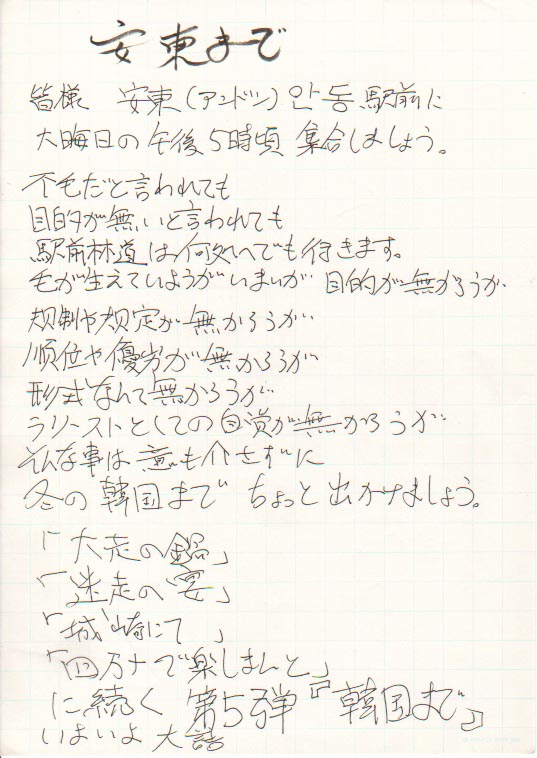 安東まで
皆様 安東(アンドン)안동駅前に
大晦日の午後5時頃 集合しましょう。
不毛だと言われても
目的が無いと言われても
駅前林道は何処へでも行きます。
毛が生えていようがいまいが 目的が無かろうが
規制や規定が無かろうが
順位や優劣が無かろうが
形式なんて無かろうが
ラリーストとしての自覚が無かろうが
そんな事は意も介せずに
冬の韓国まで ちょっと出かけましょう。
「大走の鍋」
「迷走の宴」
「城崎にて」
「四万十で楽しまんと」
に続く 第5弾『韓国まで』
いよいよ大詰